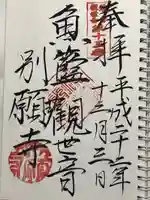 奉拝
平成二十二年
十二月三日
魚籃観世音
別願寺